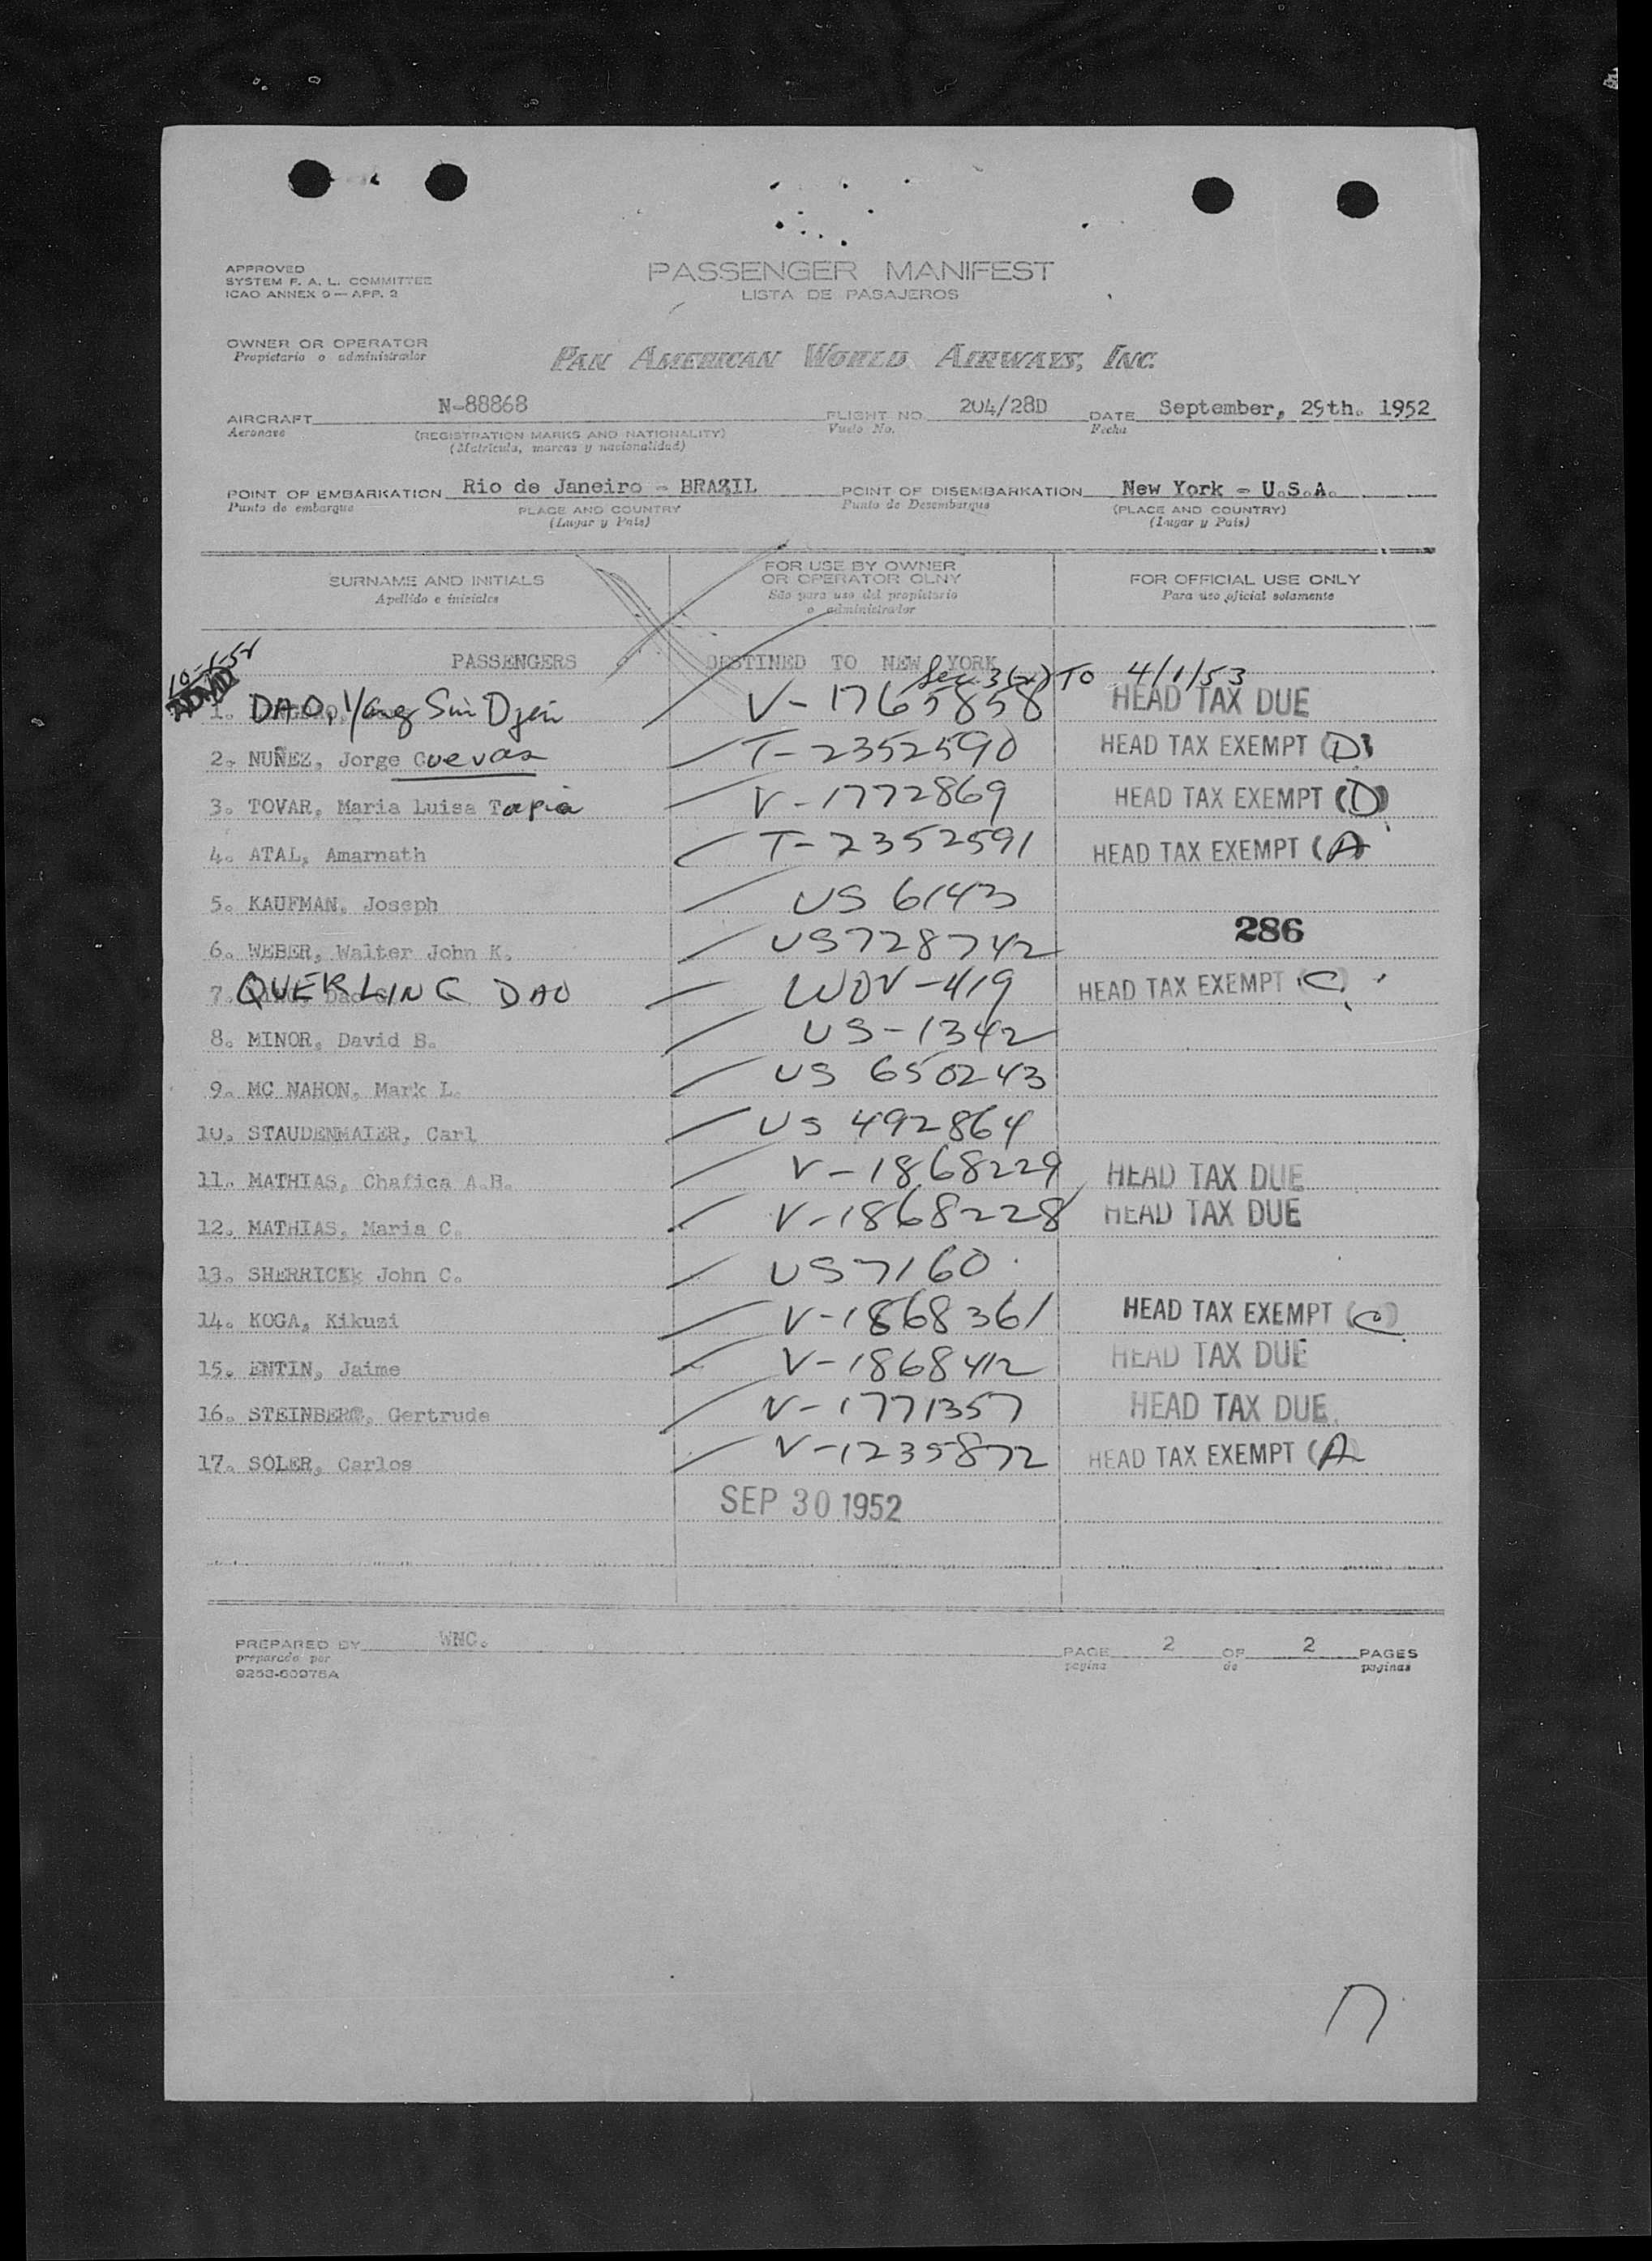 APPROVED
SYSTEM F. A. L. COMMITTEE
ICAO ANNEX 9 — APP. 2
PASSENGER MANIFEST
LISTA DE PASAJEROS
OWNER OR OPERATOR
Propietario o administrador
PAN AMERICAN WORLD AIRWAYS, INC.
AIRCRAFT N-88868 FLIGHT NO. 204/28D DATE September, 29th. 1952
Aeronave Vuelo No. Fecha
(REGISTRATION MARKS AND NATIONALITY)
(Matricula, marcas y nacionalidad)
POINT OF EMBARKATION Rio de Janeiro - BRAZIL POINT OF DISEMBARKATION New York - U.S.A.
Punto de embarque PLACE AND COUNTRY Punto de Desembarque (PLACE AND COUNTRY)
(Lugar y Pais) (Lugar y Pais)
SURNAME AND INITIALS
Apellido e iniciales
FOR USE BY OWNER
OR OPERATOR OLNY
São para uso del propietario
o administrador
FOR OFFICIAL USE ONLY
Para uso oficial solamente
PASSENGERS DESTINED TO NEW YORK
Sec. 3(2) TO 4/1/53
1. DAO, Yang Sin Djen V-1765858 HEAD TAX DUE
2. NUÑEZ, Jorge Cuevas T-2352590 HEAD TAX EXEMPT (D)
3. TOVAR, Maria Luisa Tapia V-1772869 HEAD TAX EXEMPT (D)
4. ATAL, Amarnath T-2352591 HEAD TAX EXEMPT (A
5. KAUFMAN, Joseph US 6143
286
6. WEBER, Walter John K. US728742
7. QUERLING DAO WDV-419 HEAD TAX EXEMPT (C)
8. MINOR, David B. US-1342
9. MC NAHON, Mark L. US 650243
10. STAUDENMAIER, Carl US 492864
11. MATHIAS, Chafica A.H. V-1868229 HEAD TAX DUE
12. MATHIAS, Maria C. V-1868228 HEAD TAX DUE
13. SHERRICKk John C. US7160
14. KOGA, Kikuzi V-1868361 HEAD TAX EXEMPT (C)
15. ENTIN, Jaime V-1868412 HEAD TAX DUE
16. STEINBERG, Gertrude V-1771357 HEAD TAX DUE
17. SOLER, Carlos V-1235872 HEAD TAX EXEMPT (A
SEP 30 1952
PREPARED BY WNC. PAGE 2 OF 2 PAGES
preparado por pagina de paginas
9253-60975A